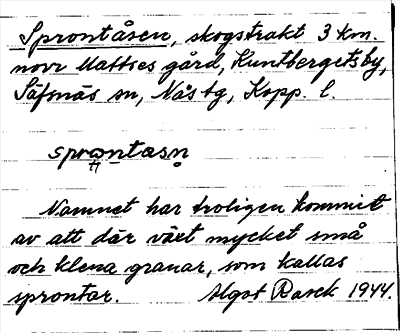 Sprontåsen, skogstrakt 3 km.
norr Mattses gård, Kuntbergetsby,
Säfsnäs sn, Nås tg, Kopp. l.
sprontasn
Namnet har troligen kommit
av att där växt mycket små
och klena granar, som kallas
sprontar. Algot Rasck 1944.